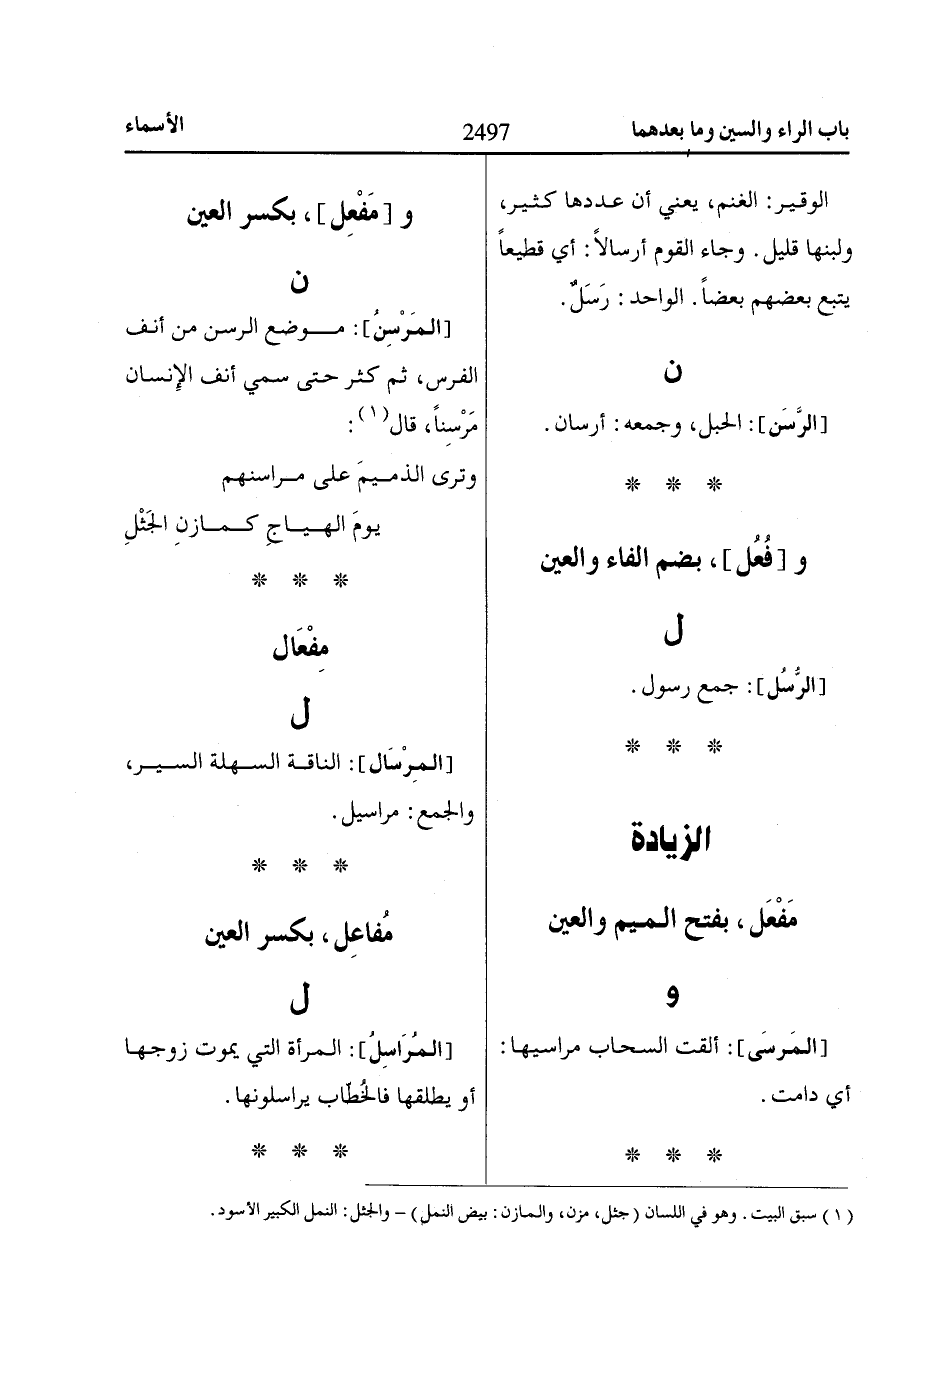 باب الراء والسين وما بعدهما
2497
الأسماء
الوقير: الغنم، يعني أن عددها كثير،
ولبنها قليل. وجاء القوم أرسالاً: أي قطيعاً
يتبع بعضهم بعضاً. الواحد: رَسَلٌ.
ن
[الرَّسَن]: الحبل، وجمعه: أرسان.
* * *
و [فُعُل]، بضم الفاء والعين
ل
[الرُّسُل]: جمع رسول.
* * *
الزيادة
مَفْعَل، بفتح الميم والعين
و
[المَرسَى]: ألقت السحاب مراسيها:
أي دامت.
* * *
و [مَفْعِل]، بكسر العين
ن
[المَرْسِنُ]: موضع الرسن من أنف
الفرس، ثم كثر حتى سمي أنف الإنسان
مَرْسِناً، قال(١):
وترى الذميمَ على مراسنهم
يومَ الهياجِ كمازنِ الجَثْلِ
* * *
مِفْعَال
ل
[المِرْسَال]: الناقة السهلة السير،
والجمع: مراسيل.
* * *
مُفاعِل، بكسر العين
ل
[المُرَاسِلُ]: المرأة التي يموت زوجها
أو يطلقها فالخُطّاب يراسلونها.
* * *
(١) سبق البيت. وهو في اللسان (جثل، مزن، والمازن: بيض النمل) – والجثل: النمل الكبير الأسود.